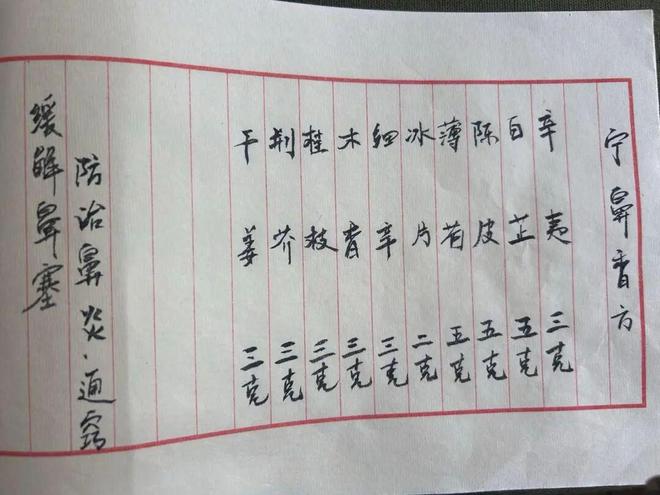 宁鼻香方
辛夷三克
白芷五克
陈皮五克
薄荷五克
冰片二克
细辛三克
木香三克
桂枝三克
荆芥三克
干姜三克
防治鼻炎、通窍
缓解鼻塞